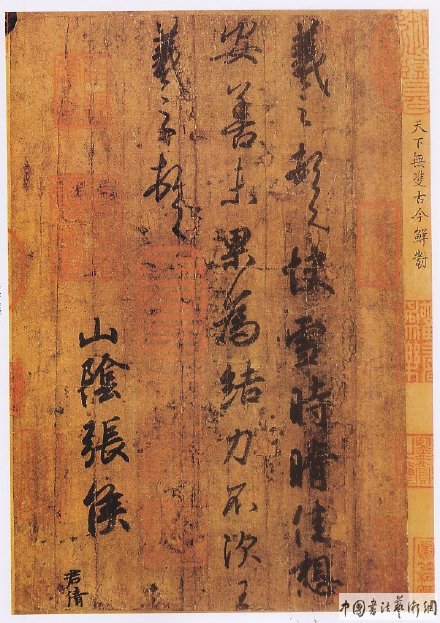 天下無雙古今鮮對
羲之頓首快雪時晴佳想
安善未果為結力不次王
羲之頓首
山陰張侯
君倩
中国書法藝術網